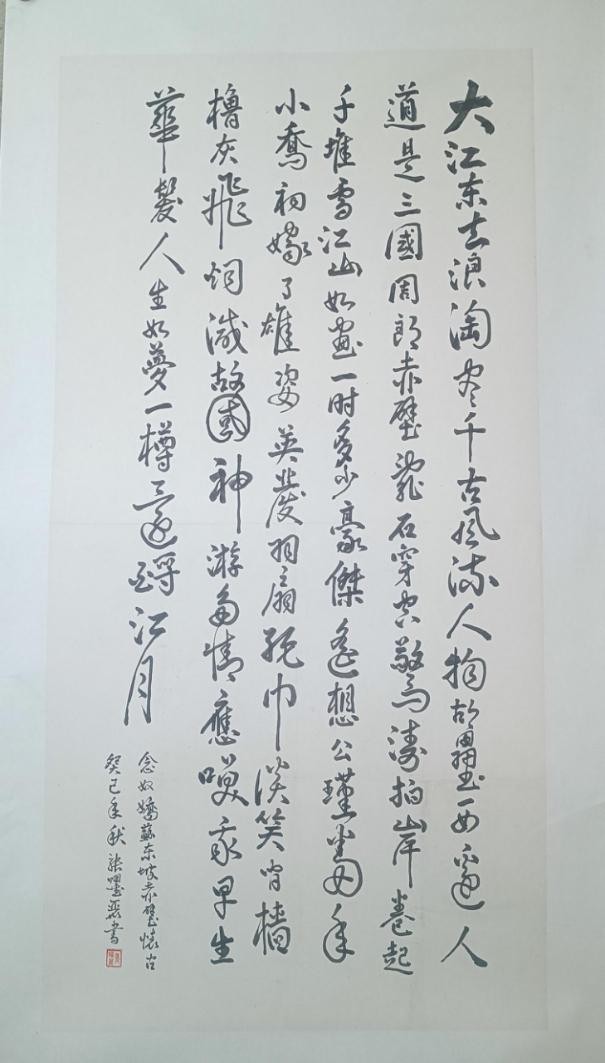 大江东去浪淘尽千古风流人物故壘西邊人
道是三國周郎赤壁亂石穿空驚濤拍岸卷起
千堆雪江山如畫一时多少豪傑遙想公瑾當年
小喬初嫁了雄姿英發羽扇綸巾淡笑间檣
櫓灰飛烟滅故國神游多情應咲我早生
華髮人生如夢一樽還酹江月
念奴嬌蘇东坡赤壁懷古
癸巳年秋書